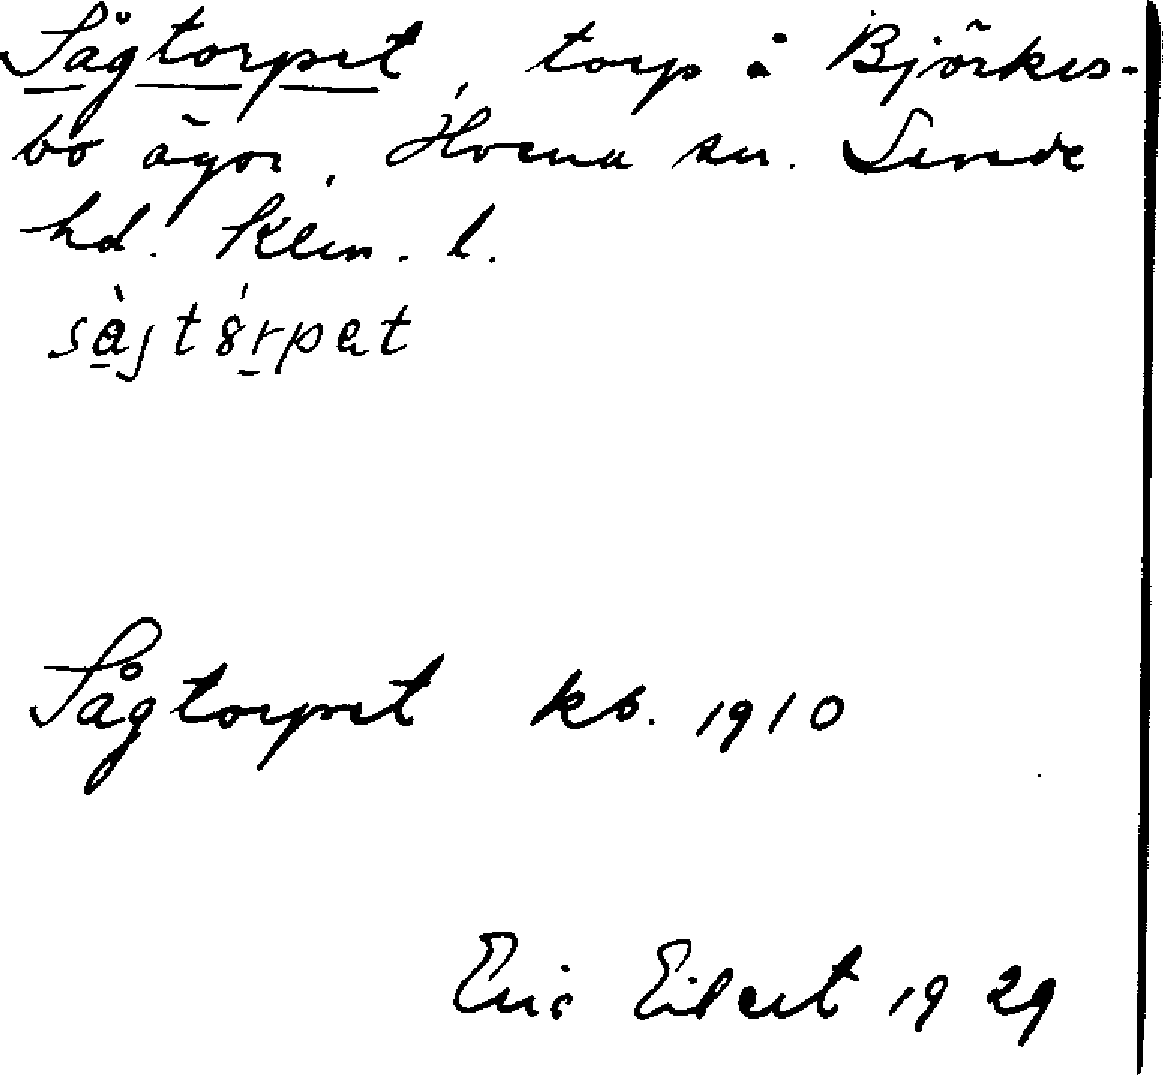 Sågtorpet, torp å Björkes-
bo ägor, Horna sn. Sunde
hd. Klm. l.
Sågtorpet kb. 1910
Eric Eilert 1929